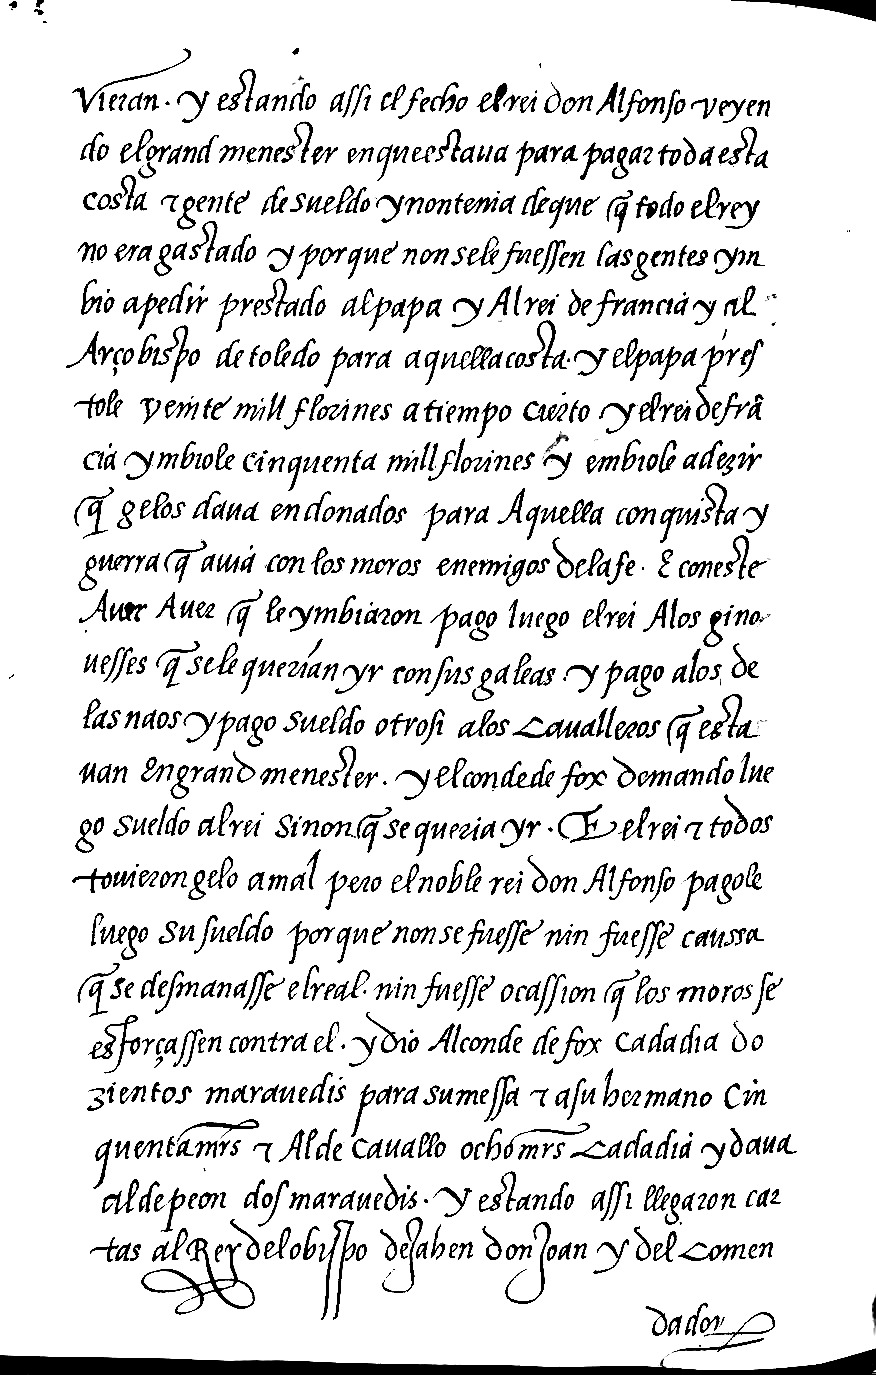 vieran. y estando assi el fecho el rei don Alfonso veyen
do el grand menester en que estaua para pagar toda esta
costa ⁊ gente de sueldo y non tenia de que q̃ todo el rey
no era gastado y por que non se le fuessen las gentes ym
bio a pedir prestado al papa y Al rei de francia y al
Arçobispo de toledo para aquella costa. y el papa pres
tole veinte mill florines a tiempo cierto y el rei de frã
cia ymbiole cinquenta mill florines y embiole a dezir
q̃ gelos daua en donados para Aquella conquista y
guerra q̃ auia con los moros enemigos de la fe. E con este
Auer Auer q̃ le ymbiaron pago luego el rei A los gino
uesses q̃ se le querían yr con sus galeas. y pago a los de
las naos y pago sueldo otrosi a los caualleros q̃ esta
uan En grand menester. y el conde de fox demando lue
go sueldo al rei sinon q̃ se queria yr. E el rei ⁊ todos
touierongelo a mal pero el noble rei don Alfonso pagole
luego su sueldo por que non se fuesse nin fuesse caussa
q̃ se desmanasse el real. nin fuesse ocassion q̃ los moros se
esforçassen contra el. y dio Al conde de fox cada dia do
zientos marauedis para su messa ⁊ a su hermano Cin
quenta mr̃s ⁊ Al de cauallo ocho mr̃s cada dia y daua
al de peon dos marauedis. y estando assi llegaron car
tas al Rey del obispo de Jahen don Joan y del comen
dador